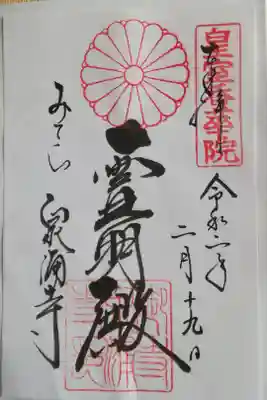 奉拝
皇室香華院
令和六年
二月十九日
霊明殿
みてら
泉涌寺